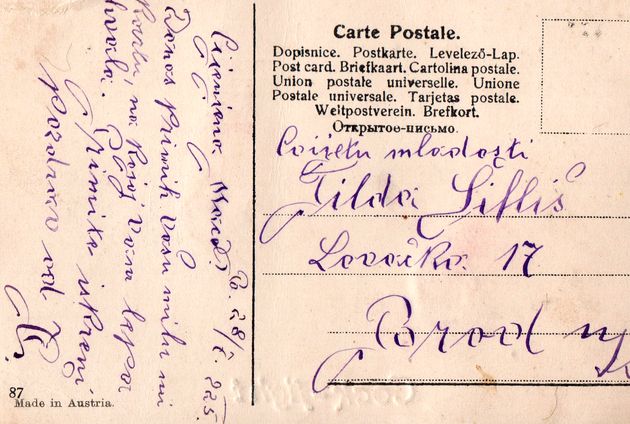 Carte Postale.
Dopisnice. Postkarte. Levelező-Lap.
Post card. Briefkaart. Cartolina postale.
Union postale universelle. Unione
Postale universale. Tarjetas postale.
Weltpostverein. Brefkort.
Открытое-письмо.
Cvijetu mladosti
Tilda
Lovačka 17
Brod n/
Cijenjena
B. 28/I. 925.
Danas primih Vašu milu mi
Kartu, na Kojoj Vam lepa
hvala.
Primite iskreni
pozdrav od
87
Made in Austria.